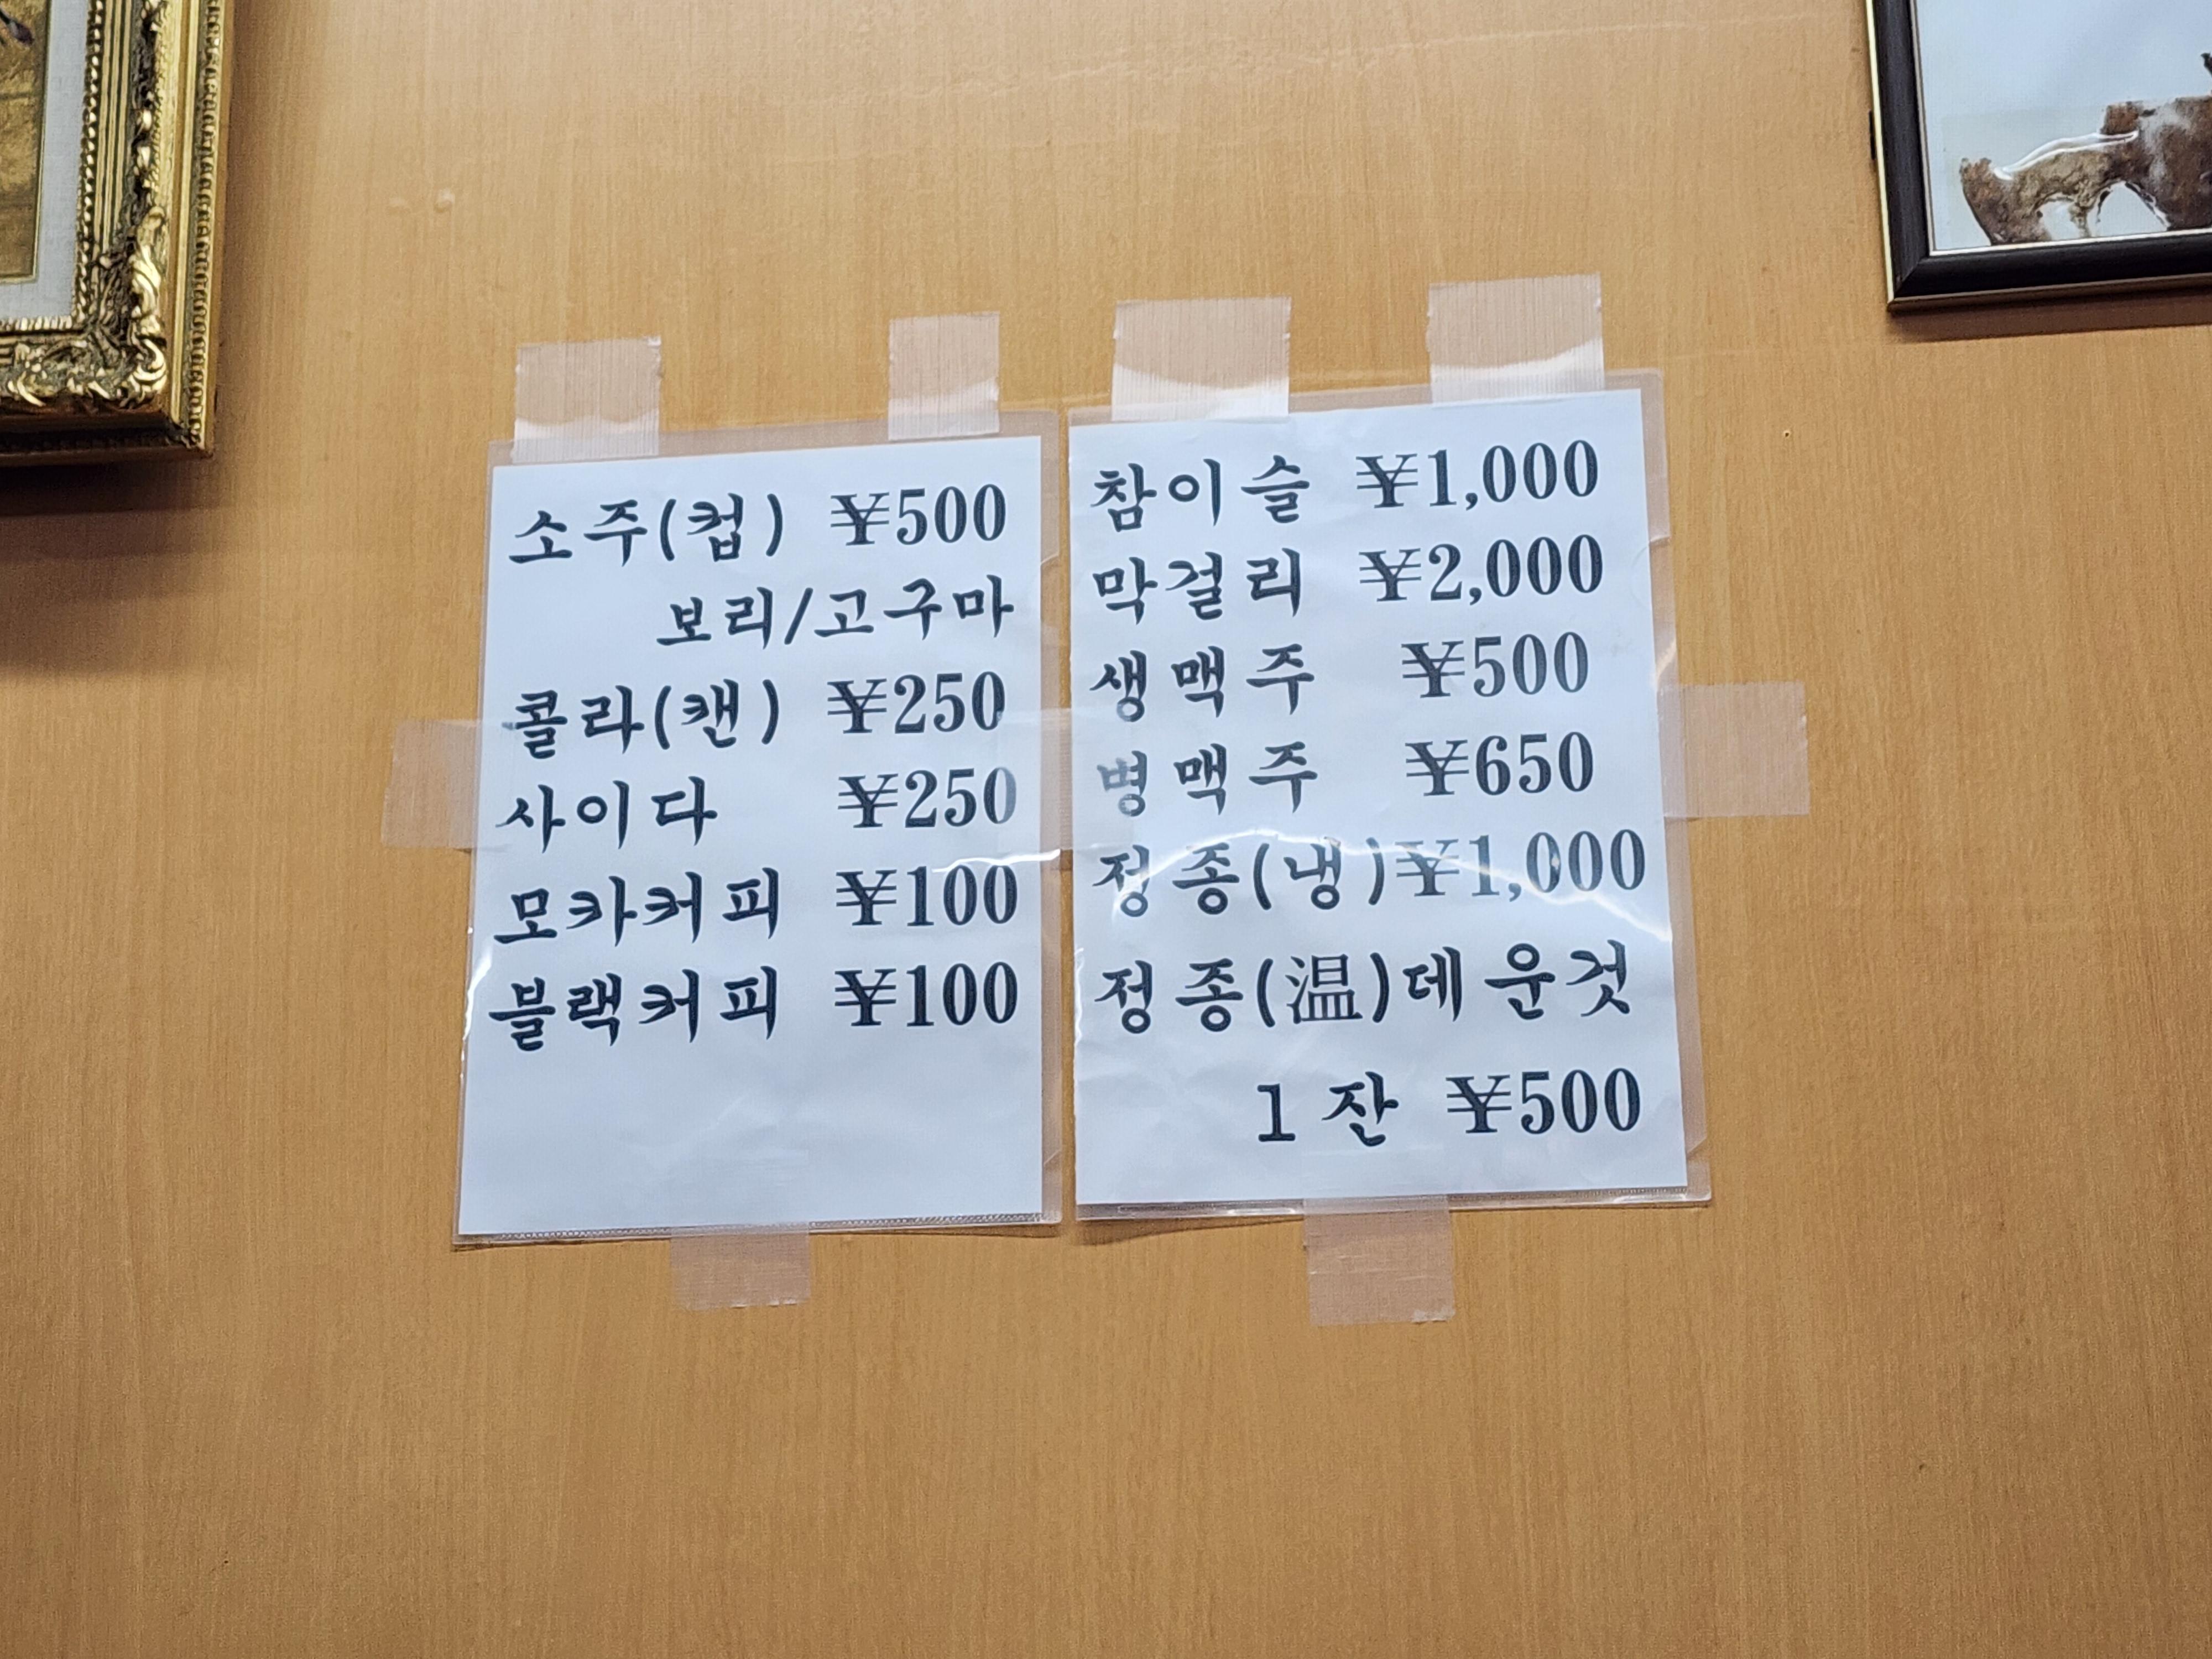 소주(컵) ¥500
보리/고구마
콜라(캔) ¥250
사이다 ¥250
모카커피 ¥100
블랙커피 ¥100
참이슬 ¥1,000
막걸리 ¥2,000
생맥주 ¥500
병맥주 ¥650
정종(냉)¥1,000
정종(温)데운것
1잔 ¥500